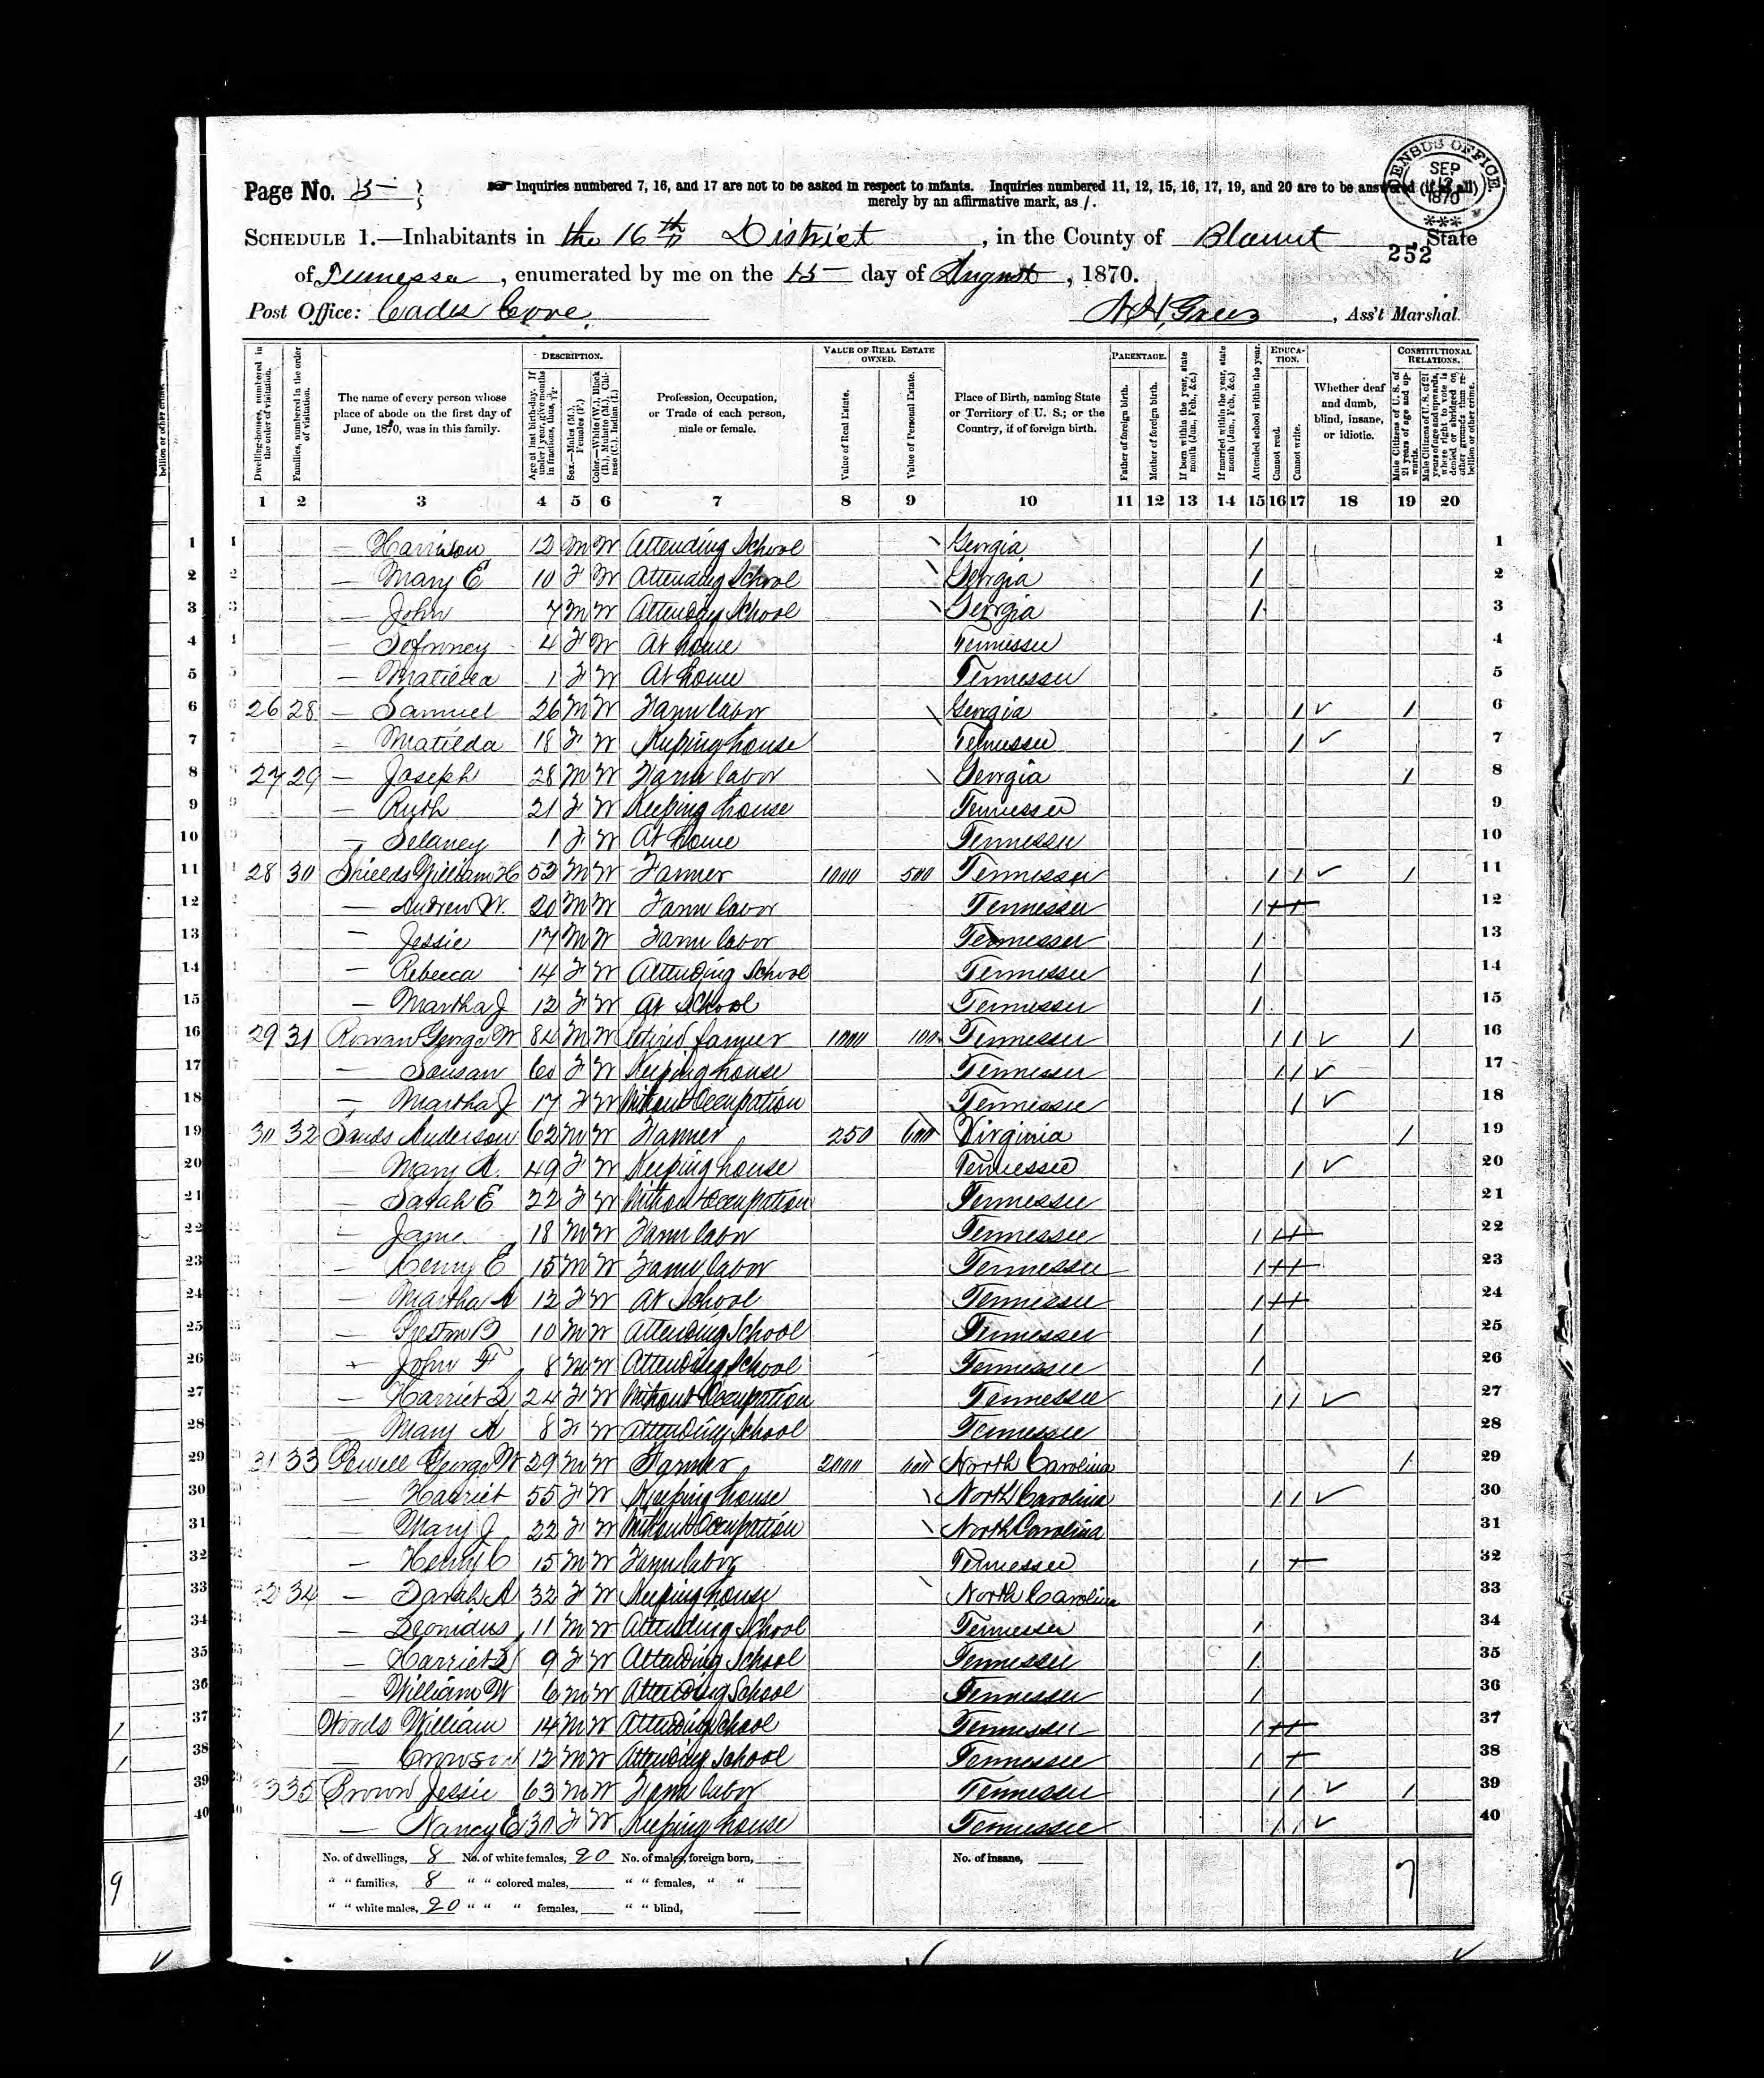 Page No. 5
Inquiries numbered 7, 16, and 17 are not to be asked in respect to infants. Inquiries numbered 11, 12, 15, 16, 17, 19, and 20 are to be answered (if at all)
merely by an affirmative mark, as /.
CENSUS OFFICE
SEP
12
1870
***
SCHEDULE 1.—Inhabitants in the 16th District, in the County of Blount, State
252
of Tennessee, enumerated by me on the 15 day of August, 1870.
Post Office: Cades Cove. Ass't Marshal.
Dwelling-houses, numbered in the order of visitation.
Families, numbered in the order of visitation.
The name of every person whose place of abode on the first day of June, 1870, was in this family.
DESCRIPTION.
Age at last birth-day. If under 1 year, give months in fractions, thus, 3/12.
Sex.—Males (M.), Females (F.)
Color.—White (W.), Black (B.), Mulatto (M.), Chinese (C.), Indian (I.)
Profession, Occupation, or Trade of each person, male or female.
VALUE OF REAL ESTATE OWNED.
Value of Real Estate.
Value of Personal Estate.
Place of Birth, naming State or Territory of U. S.; or the Country, if of foreign birth.
PARENTAGE.
Father of foreign birth.
Mother of foreign birth.
If born within the year, state month (Jan., Feb., &c.)
If married within the year, state month (Jan., Feb., &c.)
Attended school within the year.
EDUCATION.
Cannot read.
Cannot write.
Whether deaf and dumb, blind, insane, or idiotic.
CONSTITUTIONAL RELATIONS.
Male Citizens of U. S. of 21 years of age and upwards.
Male Citizens of U. S. of 21 years of age and upwards, where right to vote is denied or abridged on other grounds than rebellion or other crime.
1 2 3 4 5 6 7 8 9 10 11 12 13 14 15 16 17 18 19 20
1 — Harrison 12 M W Attending School Georgia / 1
2 — Mary E 10 F W Attending School Georgia / 2
3 — John 7 M W Attending School Georgia / 3
4 — 4 F W At home Tennessee 4
5 — Matilda 1 F W At home Tennessee 5
6 26 28 — Samuel 26 M W Farm labor Georgia / ✓ / 6
7 — Matilda 18 F W Keeping house Tennessee / ✓ 7
8 27 29 — Joseph 28 M W Farm labor Georgia / 8
9 — Ruth 21 F W Keeping house Tennessee 9
10 — Delaney 1 F W At home Tennessee 10
11 28 30 Shields William H 53 M W Farmer 1000 500 Tennessee / / ✓ / 11
12 — Andrew W. 20 M W Farm labor Tennessee / 12
13 — Jessie 17 M W Farm labor Tennessee / 13
14 — Rebecca 14 F W Attending School Tennessee / 14
15 — Martha J 12 F W At School Tennessee / 15
16 29 31 Rowan George W 84 M W retired farmer 1000 100 Tennessee / / ✓ / 16
17 — Sousan 60 F W Keeping house Tennessee / / ✓ 17
18 — Martha J 17 F W Without Occupation Tennessee / ✓ 18
19 30 32 Sands Anderson 62 M W Farmer 250 600 Virginia / 19
20 — Mary A. 49 F W Keeping house Tennessee / ✓ 20
21 — Sarah E 22 F W Without Occupation Tennessee 21
22 — Jame 18 M W Farm labor Tennessee / 22
23 — Henry E 15 M W Farm labor Tennessee / 23
24 — Martha A 12 F W At School Tennessee / 24
25 — Preston B 10 M W Attending School Tennessee / 25
26 — John F 8 M W Attending School Tennessee / 26
27 — Harriet L 24 F W Without Occupation Tennessee / / ✓ 27
28 — Mary A 8 F W Attending School Tennessee 28
29 31 33 Powell George W 29 M W Farmer 2000 600 North Carolina / 29
30 — Harriet 55 F W Keeping house North Carolina / / ✓ 30
31 — Mary J 22 F W Without Occupation North Carolina 31
32 — Henry C 15 M W Farm labor Tennessee / 32
33 32 34 — Sarah A 32 F W Keeping house North Carolina 33
34 — Leonidus 11 M W Attending School Tennessee / 34
35 — Harriet L 9 F W Attending School Tennessee / 35
36 — William W 6 M W Attending School Tennessee / 36
37 Woods William 14 M W Attending School Tennessee / 37
38 — 12 M W Attending School Tennessee / 38
39 33 35 Brown Jessie 63 M W Farm labor Tennessee / / ✓ / 39
40 — Nancy E 30 F W Keeping house Tennessee / / ✓ 40
No. of dwellings, 8 No. of white females, 20 No. of males, foreign born, No. of insane, 7
" " families, 8 " " colored males, " " females, " "
" " white males, 20 " " " females, " " blind,
9